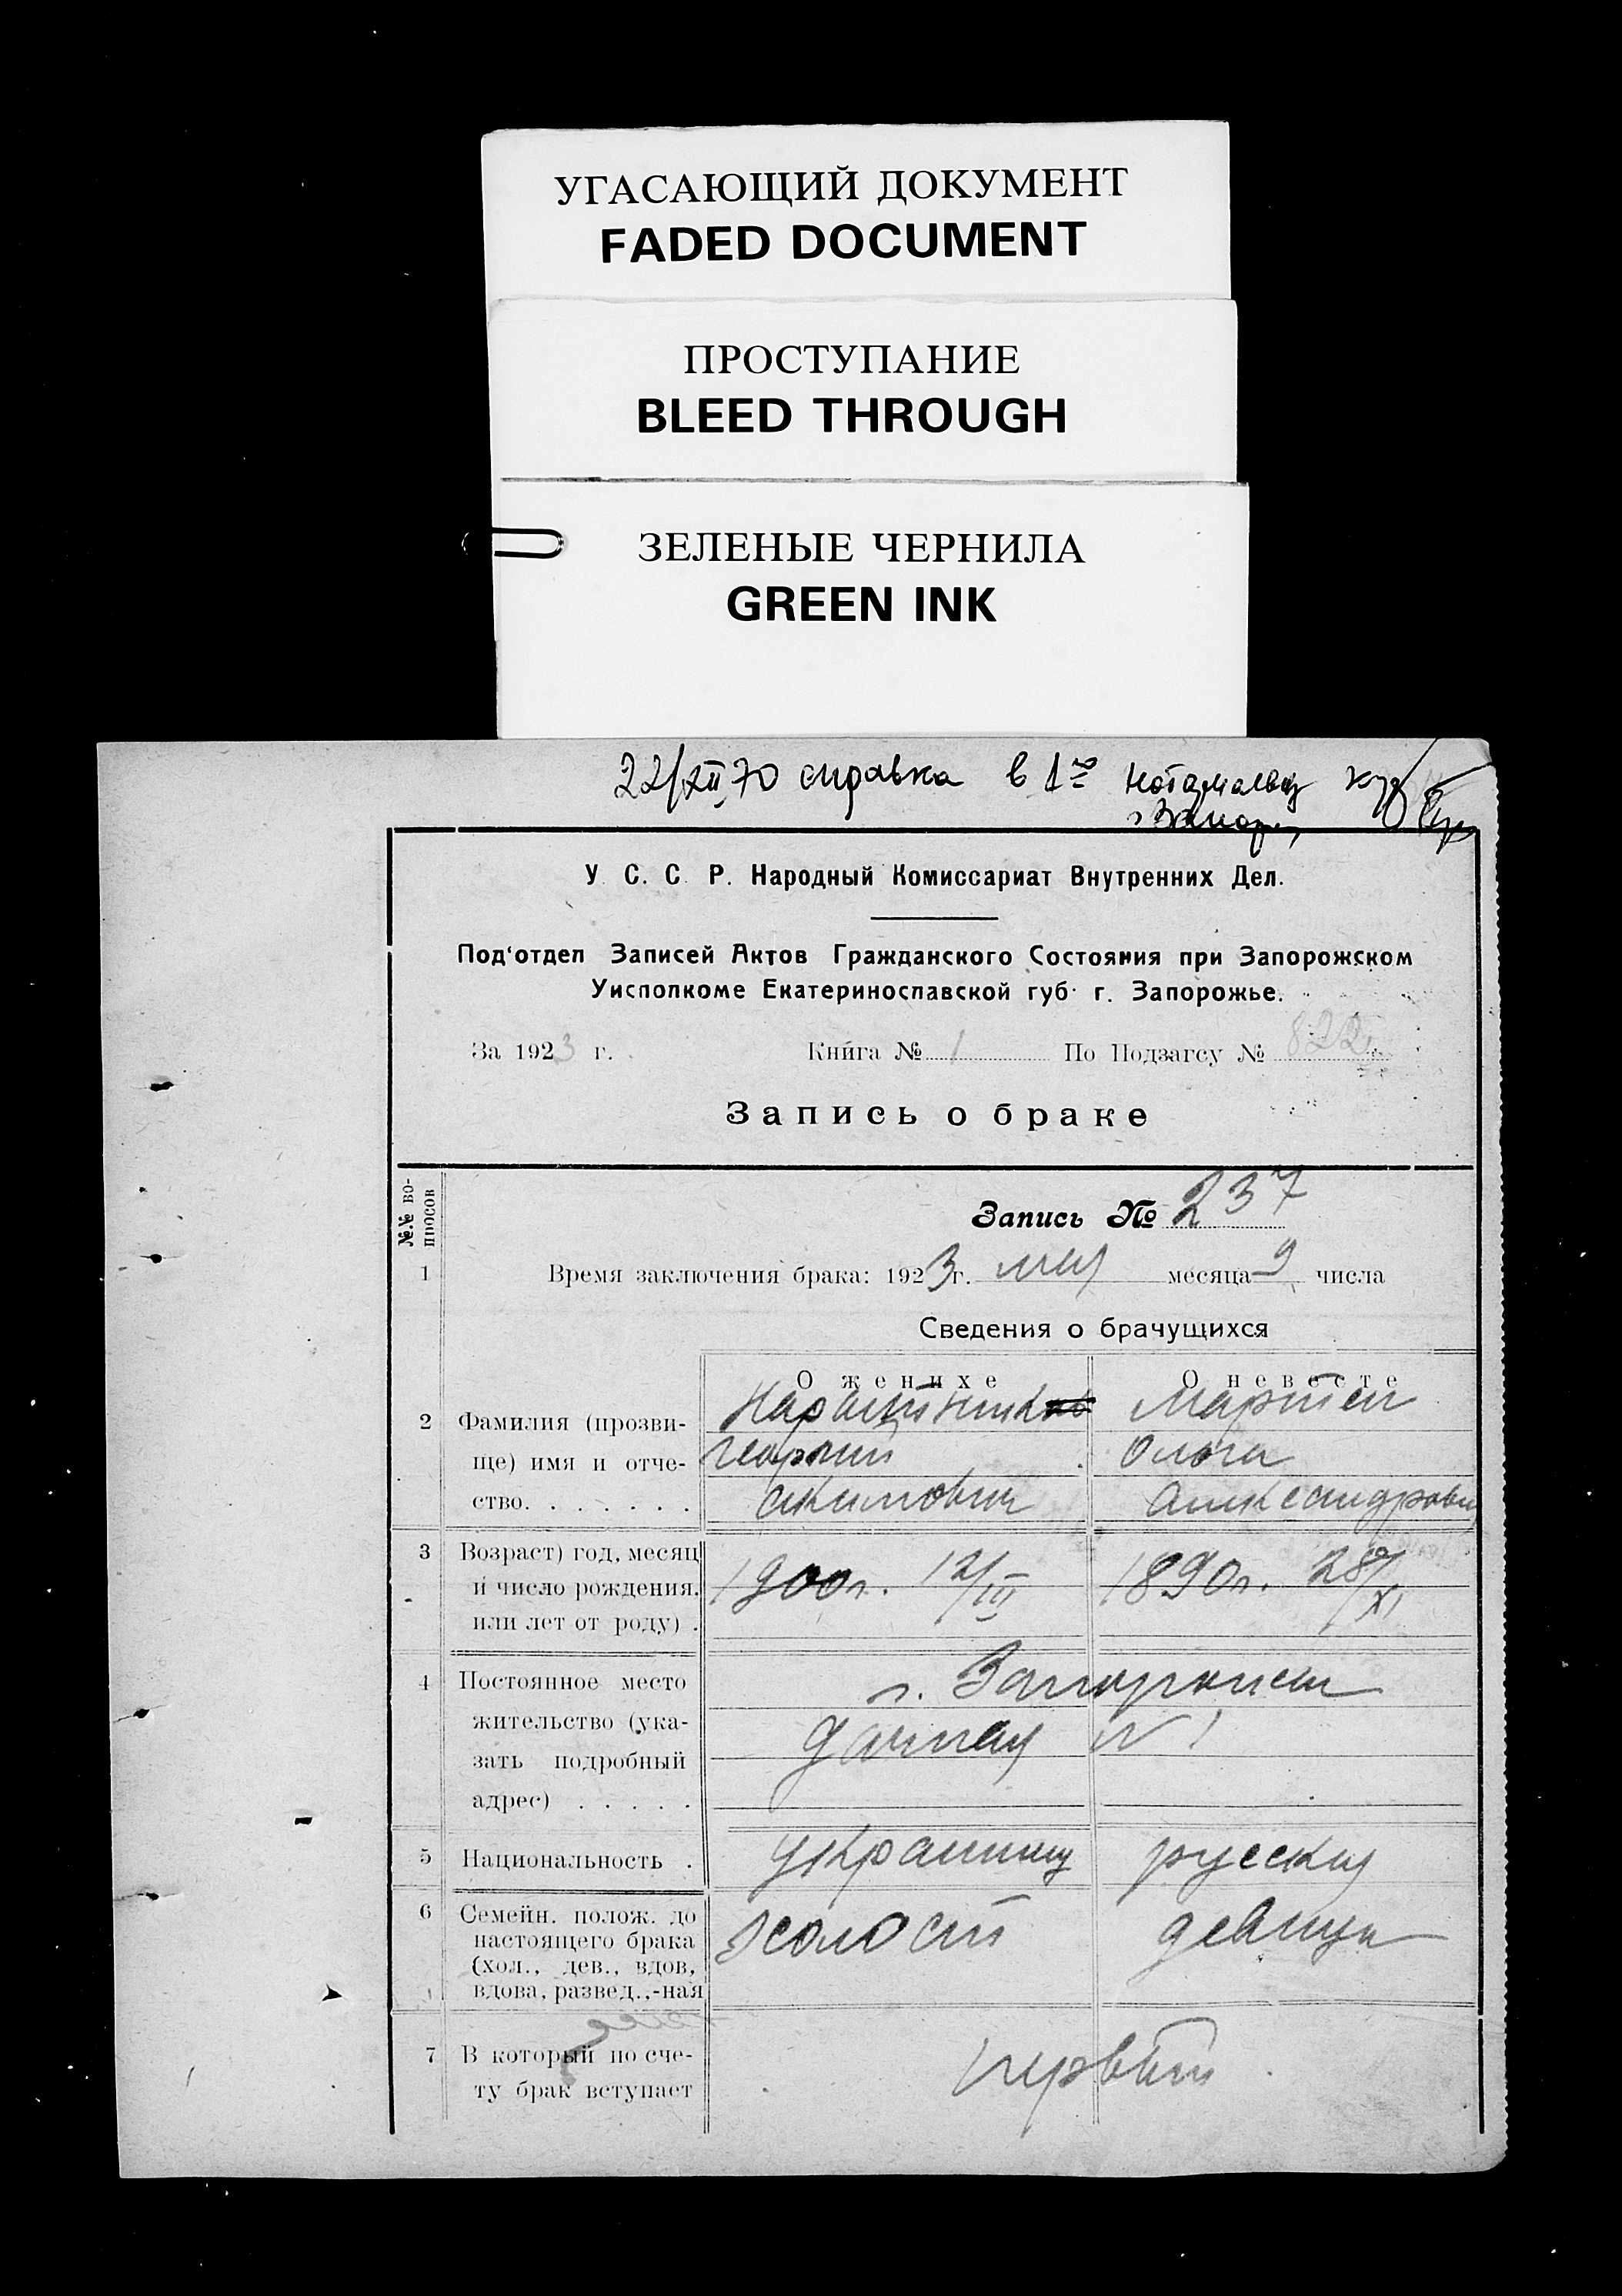 УГАСАЮЩИЙ ДОКУМЕНТ
FADED DOCUMENT
ПРОСТУПАНИЕ
BLEED THROUGH
ЗЕЛЕНЫЕ ЧЕРНИЛА
GREEN INK
22/XII 70 справка в 1ую
У. С. С. Р. Народный Комиссариат Внутренних Дел.
Под'отдел Записей Актов Гражданского Состояния при Запорожском
Уисполкоме Екатеринославской губ. г. Запорожье.
За 1923 г. Книга № 1 По Подзагсу № 822
Запись о браке
№.№ во-
просов
Запись № 237
1 Время заключения брака: 1923 г. мая месяца 9 числа
Сведения о брачущихся
О женихе О невесте
2 Фамилия (прозви- Мартен
ще) имя и отче- Георгий Ольга
ство. . . . . . . Акимович Александровн
3 Возраст) год, месяц
и число рождения. 1900г. 12/III 1890г. 28/XI
или лет от роду) .
4 Постоянное место г. Запорожье
жительство (ука-
зать подробный Дачная № 1
адрес) . . . . .
5 Национальность . украинец русская
6 Семейн. полож. до
настоящего брака холост девица
(хол., дев., вдов,
вдова, развед.,-ная
7 В который по сче- первый
ту брак вступает